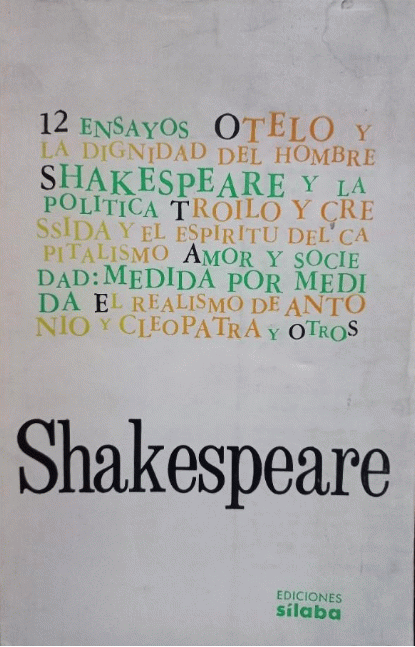 12 ENSAYOS OTELO Y
LA DIGNIDAD DEL HOMBRE
SHAKESPEARE Y LA
POLITICA TROILO Y CRE
SSIDA Y EL ESPIRITU DEL CA
PITALISMO AMOR Y SOCIE
DAD: MEDIDA POR MEDI
DA EL REALISMO DE ANTO
NIO Y CLEOPATRA Y OTROS
Shakespeare
EDICIONES
sílaba